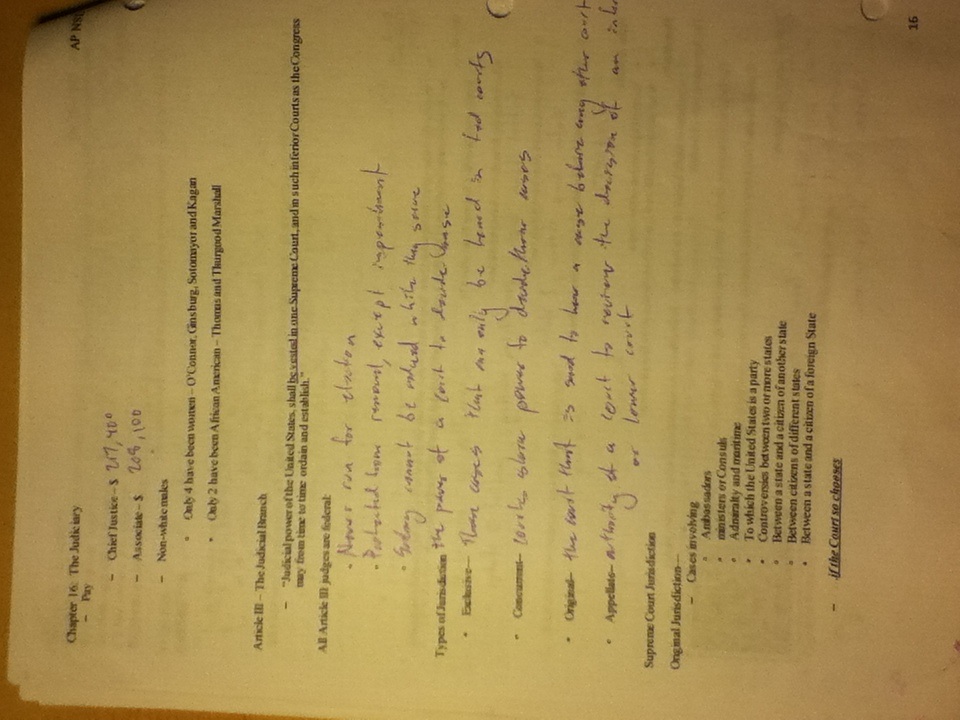 Chapter 16: The Judiciary
AP NSL
– Pay
– Chief Justice – $ 217,400
– Associate – $ 208,100
– Non-white males
• Only 4 have been women – O'Connor, Ginsburg, Sotomayor and Kagan
• Only 2 have been African American – Thomas and Thurgood Marshall
Article III – The Judicial Branch
– "Judicial power of the United States, shall be vested in one Supreme Court, and in such inferior Courts as the Congress
may from time to time ordain and establish."
All Article III judges are federal:
• Never run for election
• Protected from removal, except impeachment
• Salary cannot be reduced while they serve
Types of Jurisdiction the power of a court to decide case
• Exclusive— Those cases that can only be heard in fed courts
• Concurrent— courts share power to decide these cases
• Original— the court that is said to hear a case before any other court
• Appellate— authority of a court to review the decision of an
or lower court
Supreme Court Jurisdiction
Original Jurisdiction—
– Cases involving
• Ambassadors
• ministers or Consuls
• Admiralty and maritime
• To which the United States is a party
• Controversies between two or more states
• Between a state and a citizen of another state
• Between citizens of different states
• Between a state and a citizen of a foreign State
– if the Court so chooses
16